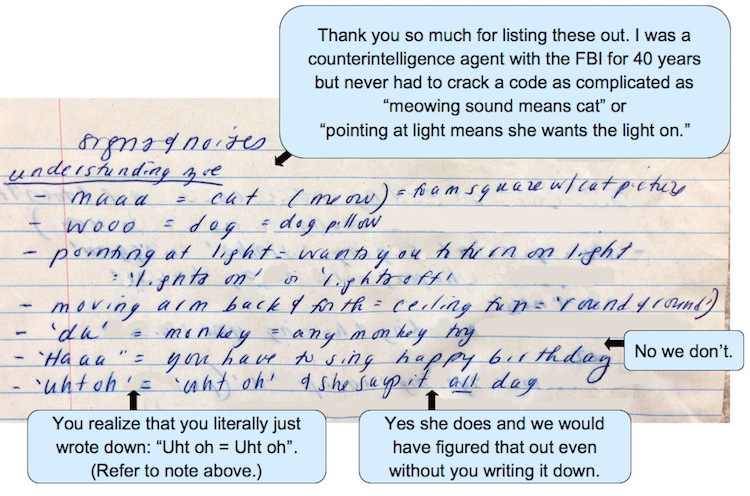 Thank you so much for listing these out. I was a
counterintelligence agent with the FBI for 40 years
but never had to crack a code as complicated as
“meowing sound means cat” or
“pointing at light means she wants the light on.”
signs & noises
understanding zoe
- maaa = cat (meow) = foam square w/ cat picture
- wooo = dog = dog pillow
- pointing at light = wants you to turn on light
= 'lights on' or 'lights off'
- moving arm back & forth = ceiling fan = 'round & round')
- 'da' = monkey = any monkey toy
- 'Haaa" = you have to sing happy birthday
No we don’t.
- 'uht oh' = 'uht oh' & she says it all day
You realize that you literally just
wrote down: “Uht oh = Uht oh”.
(Refer to note above.)
Yes she does and we would
have figured that out even
without you writing it down.